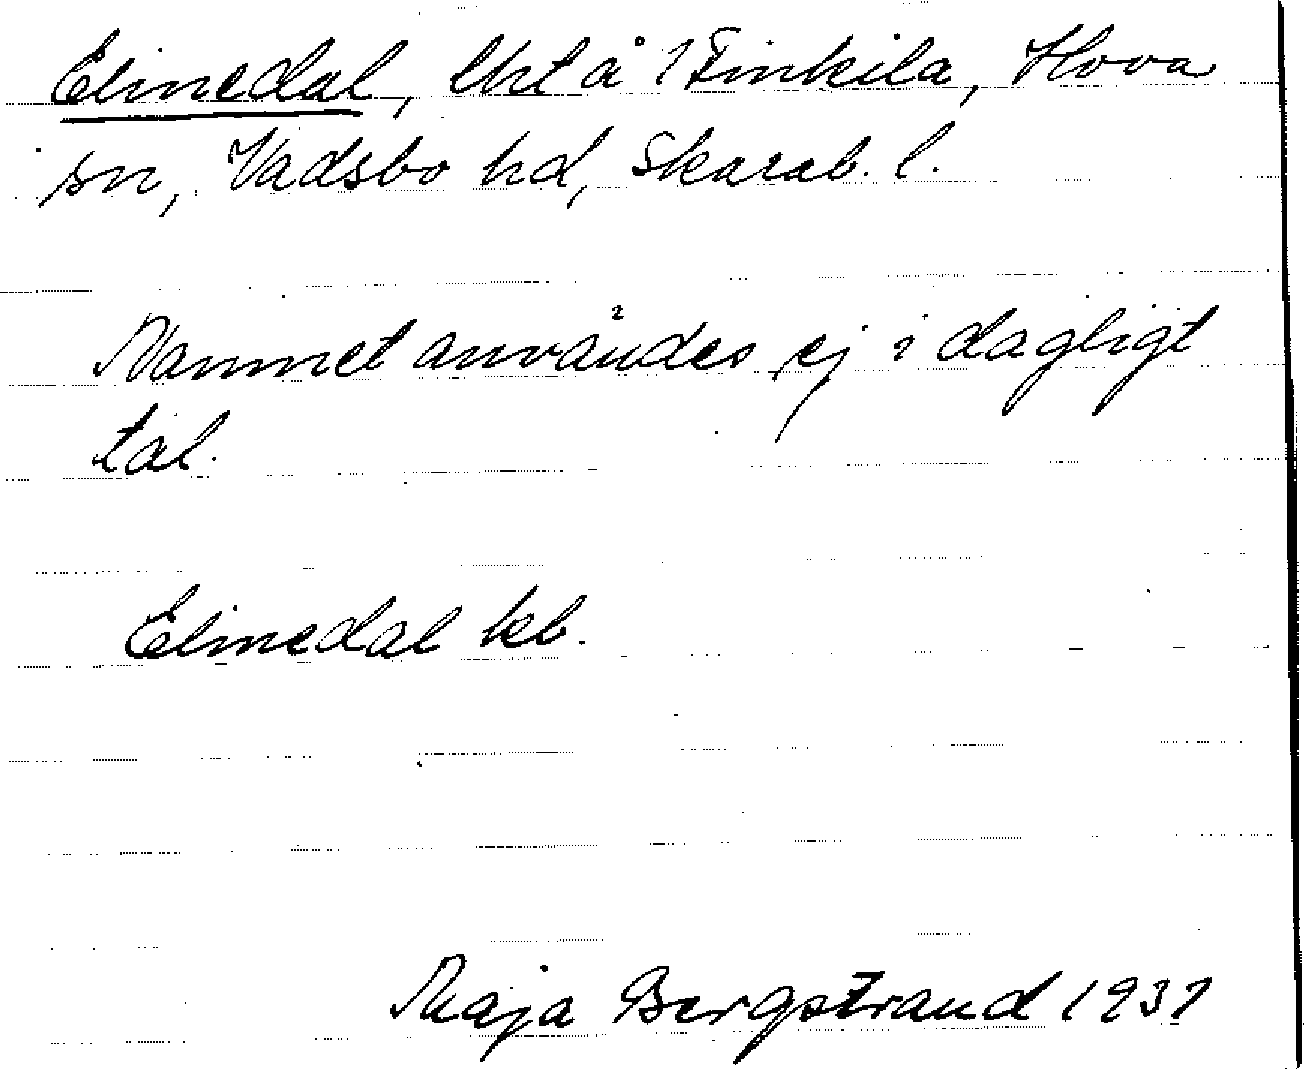 Elinedal, lht å 1 Finkila, Hova
sn, Vadsbo hd, Skarab. l.
Namnet användes ej i dagligt
tal.
Elinedal kb.
Maja Bergstrand 1937